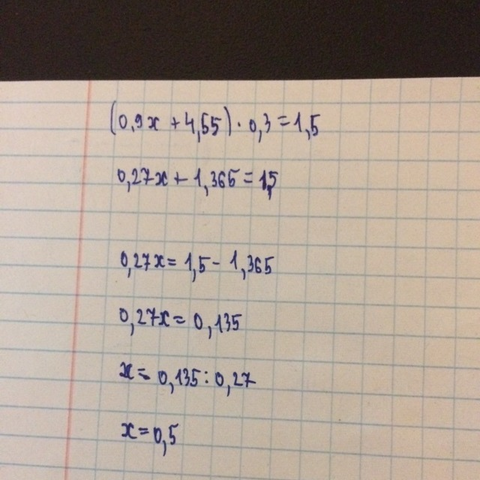 (0,9x + 4,55) · 0,3 = 1,5
0,27x + 1,365 = 1,5
0,27x = 1,5 - 1,365
0,27x = 0,135
x = 0,135 : 0,27
x = 0,5